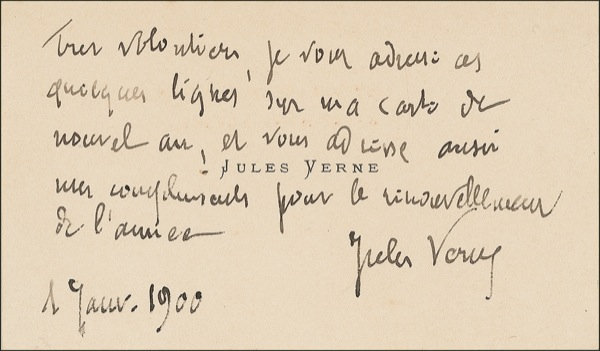 Très volontiers, je vous adresse ces
quelques lignes sur ma carte de
nouvel an, et vous adresse aussi
JULES VERNE
mes compliments pour le renouvellement
de l'année
Jules Verne
1 Janv. 1900